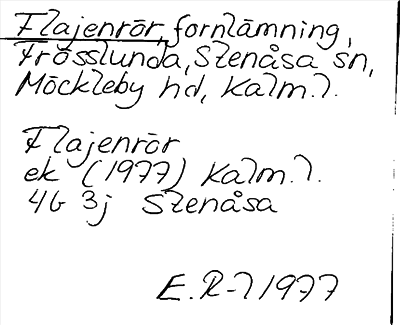 Flajenrör, fornlämning,
Frösslunda, Stenåsa sn,
Möckleby hd, Kalm.l.
Flajenrör
ek (1977) Kalm.l.
4G 3j Stenåsa
E.R-l 1977